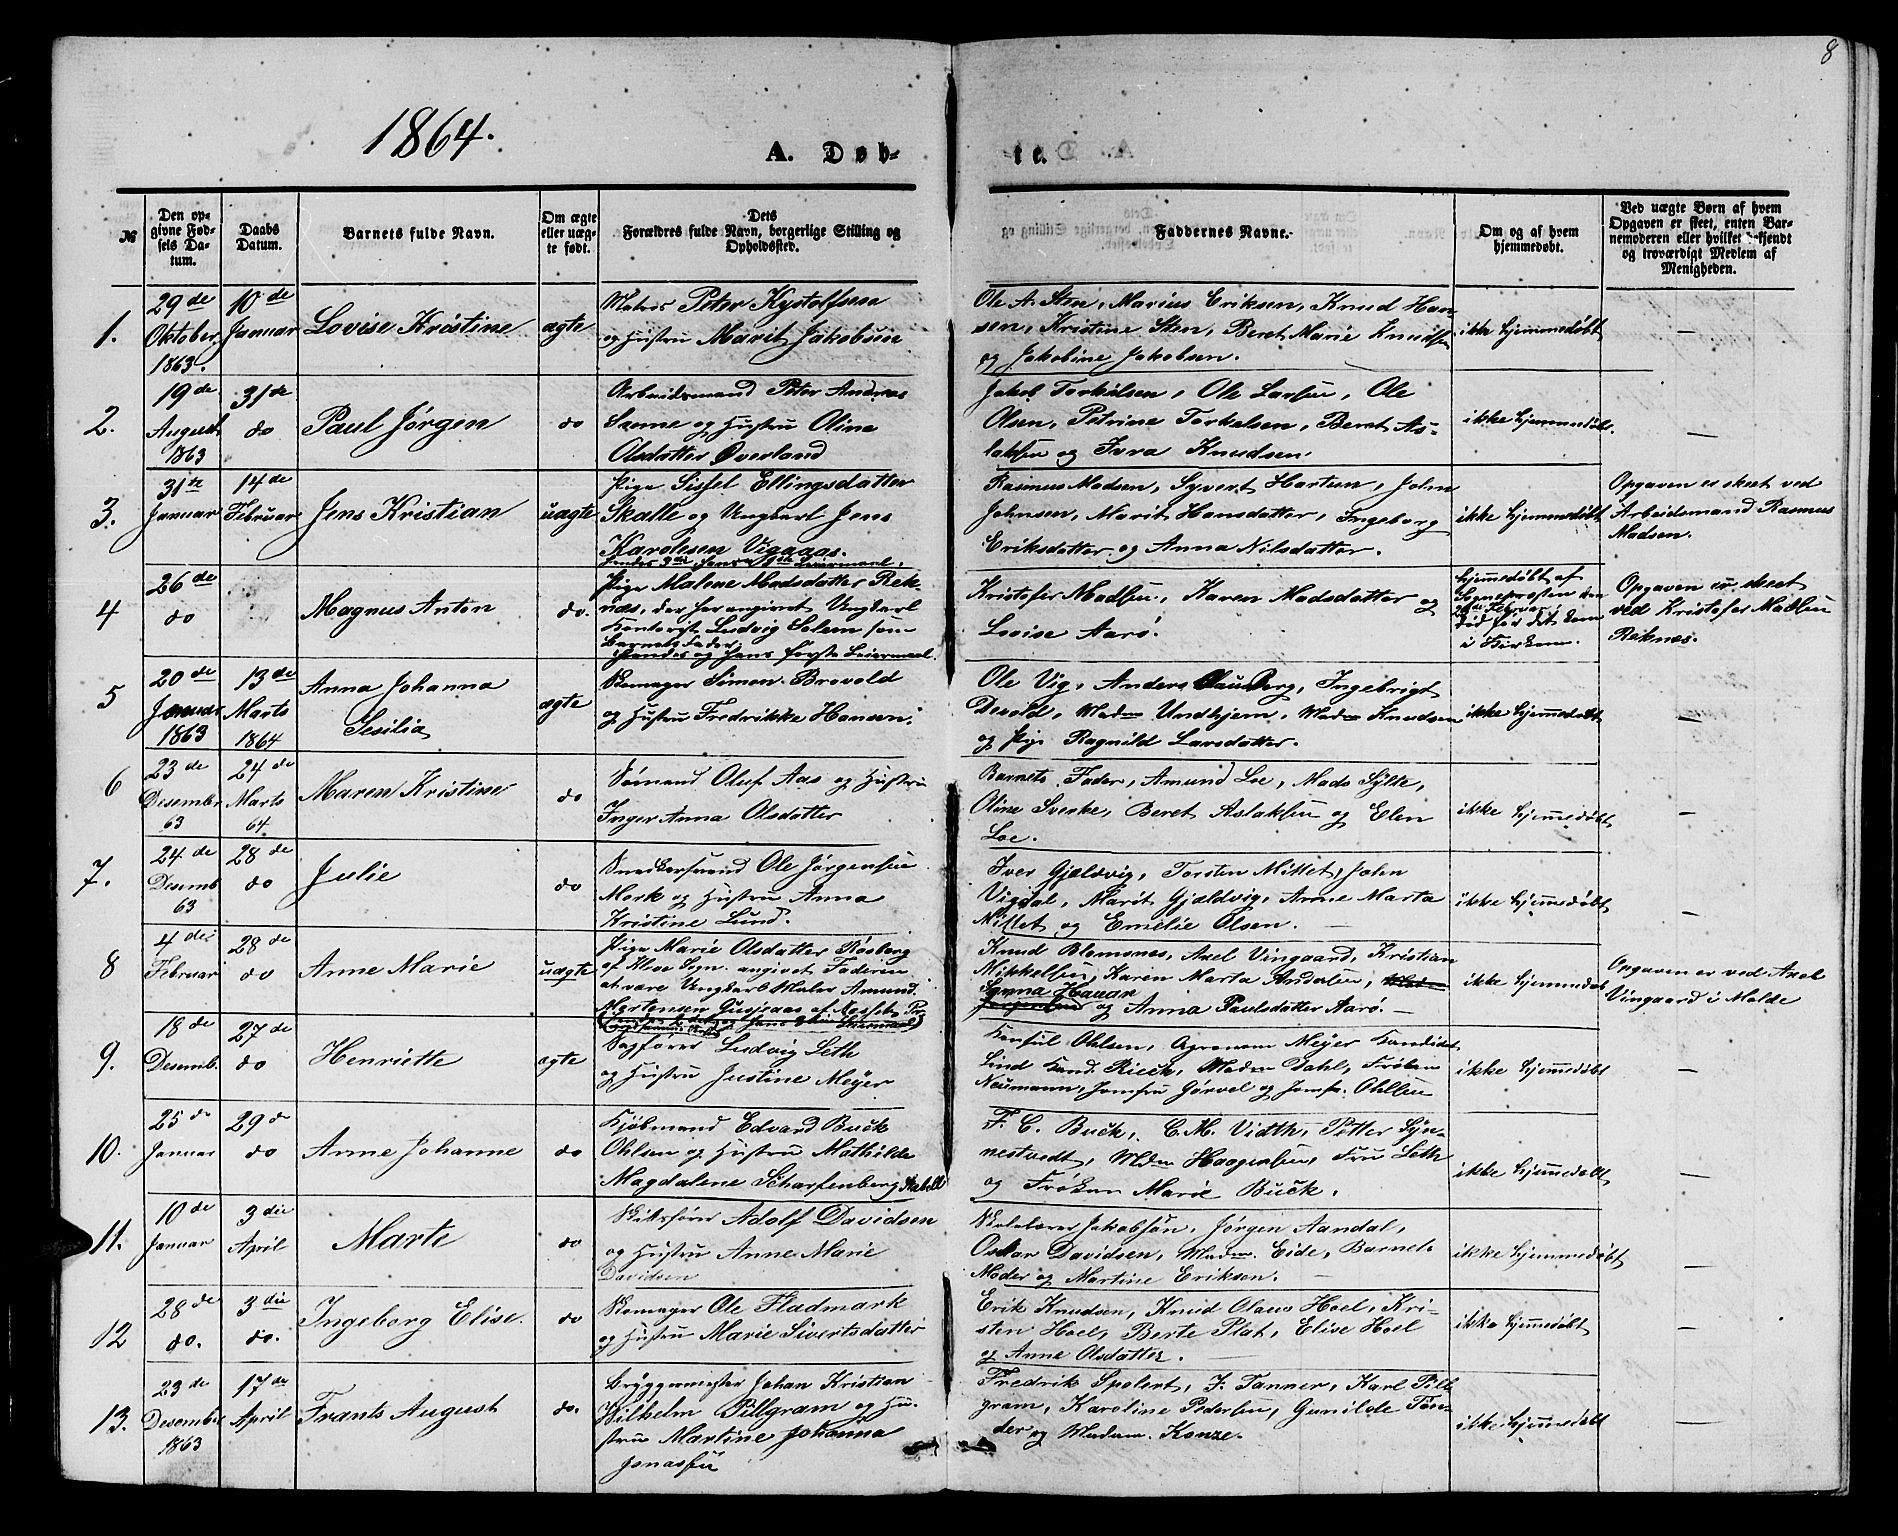 8
1864.
A. Døb-
te.
№
Den op-
givne Fød-
sels Da-
tum.
Daabs
Datum.
Barnets fulde Navn.
Om ægte
eller uæg-
te født.
Dets
Forældres fulde Navn, borgerlige Stilling og
Opholdssted.
Faddernes Navne.
Om og af hvem
hjemmedøbt.
Ved uægte Børn af hvem
Opgaven er skeet, enten Bar-
nemoderen eller hvilket bekjendt
og troværdigt Medlem af
Menigheden.
1.
29de
Oktober
1863.
10de
Januar
Lovise Kristine
ægte
Peter Kystolfsen
og Hustru Marit Jakobsen
Ole A. Sten, Marius Eriksen, Knud Han-
sen, Kristine Sten, Beret Marie Knudsen
og Jakobine Jakobsen.
ikke hjemmedøbt
—
2.
19de
August
1863
31de
do
Paul Jørgen
do
Arbeidsmand Peter Andreas
Sanne og Hustru Oline
Olsdatter Øverland
Jakob Torkilsen, Ole Larsen, Ole
Olsen, Petrine Torkelsen, Beret As-
laksen og Ivra Knudsen.
ikke hjemmedøbt.
—
3.
31te
Januar
14de
Februar
Jens Kristian
uægte
Pige Sissel Ellingsdatter
Skalle og Ungkarl Jens
Karolesen Vigaaas.
Rasmus Madsen, Syvert Hartun, John
Johnsen, Marit Hansdatter, Ingeborg
Eriksdatter og Anna Nilsdatter.
ikke hjemmedøbt
Opgaven er skeet ved
Arbeidsmand Rasmus
Madsen.
4
26de
do
Magnus Anton
do.
Pige Malene Madsdatter Rek-
næs, der har angivet Ungkarl
Kontorist Ludvig Solem som
Barnets Fader.
Hendes og Hans første Leiermaal.
Kristofer Madsen, Karen Madsdatter og
Lovise Aarø.
hjemmedøbt af
Sogneprosten den
Februar
død før det kom
i Kirken.
Opgaven er skeet
ved Kristofer Madsen
Reknæs.
5
20de
Januar
1863
13de
Marts
1864
Anna Johanna
Sesilia
ægte
Skomager Simon Brevold
og Hustru Fredrikke Hansen.
Ole Vig, Anders Clausberg, Ingebrigt
Devold, Madm Undhjem, Madm Knudsen
og Pige Ragnild Larsdatter.
ikke hjemmedøbt
—
6
23de
Desember
63
24de
Marts
64
Maren Kristine
do
Sømand Oluf Aas og Hustru
Inger Anna Olsdatter
Barnets Fader, Amund Loe, Mads Sylte,
Oline Sverke, Beret Aslaksen og Elen
Loe.
ikke hjemmedøbt
—
7.
24de
Desemb
63
28de
do
Julie
do
Snedkersvend Ole Jørgensen
Mork og Hustru Anna
Kristine Lund.
Iver Gjeldvig, Torsten Mittet, John
Vigdal, Marit Gjældvig, Anne Marta
Mittet og Emelie Olsen.
ikke hjemmedøbt
—
8
4de
Februar
28de
do
Anne Marie
uægte
Pige Marie Olsdatter Røsberg
af Kleve Sogn. angivet Faderen
at være Ungkarl Maler Amund
Mortensen Gusjaas af Nesset
Knud Blomsnes, Axel Vingaard, Kristian
Mikkelsen, Karen Marta Andersen,
Synna Haugen
og Anna Paulsdatter Aarø.
ikke hjemmedøbt
Opgaven er ved Axel
Vingaard i Molde
9.
18de
Desemb.
27de
do
Henriette
ægte
Sagfører Ludvig Seth
og Hustru Justine Meyer
Konsul Ohlsen, Agronom Meyer Kandidat
Lind Kand. Rieck, Madm Dahl, Frøken
Neumann, Jomfru Gørvel og Jomfr. Ohlsen
ikke hjemmedøbt
—
10.
25de
Januar
29de
do
Anne Johanne
do
Kjøbmand Edvard Buck
Ohlsen og Hustru Mathilde
Magdalene Scharfenberg Kabell
F. C. Buck, C. M. Vidth, Petter Syn-
nestvedt, Mdm Haagensen, Fru Seth
og Frøken Marie Buck.
ikke hjemmedøbt
—
11.
10de
Januar
3die
April
Marte
do
Skibsfører Adolf Davidsen
og Hustru Anne Marie
Davidsen
Skolelærer Jakobson, Jørgen Aandal,
Oskar Davidsen, Madm. Eide, Barnet.
Moder og Martine Eriksen.
ikke hjemmedøbt
—
12
28de
do.
3die
do.
Ingeborg Elise.
do
Skomager Ole Fladmark
og Hustru Marie Sivertsdatter
Erik Knudsen, Knud Olaus Hoel, Kri-
sten Hoel, Berte Plat, Elise Hoel
og Anne Olsdatter.
ikke hjemmedøbt
—
13.
23de
Desember
1863
17de
April
Frants August
do.
Bryggemester Johan Kristian
Wilhelm Pillgram og Hu-
stru Martine Johanna
Jonassen
Fredrik Spolert, J. Tanner, Karl Pill
gram, Karoline Pedersen, Gunilde Ton-
der og Madam. Konze.
ikke hjemmedøbt
—